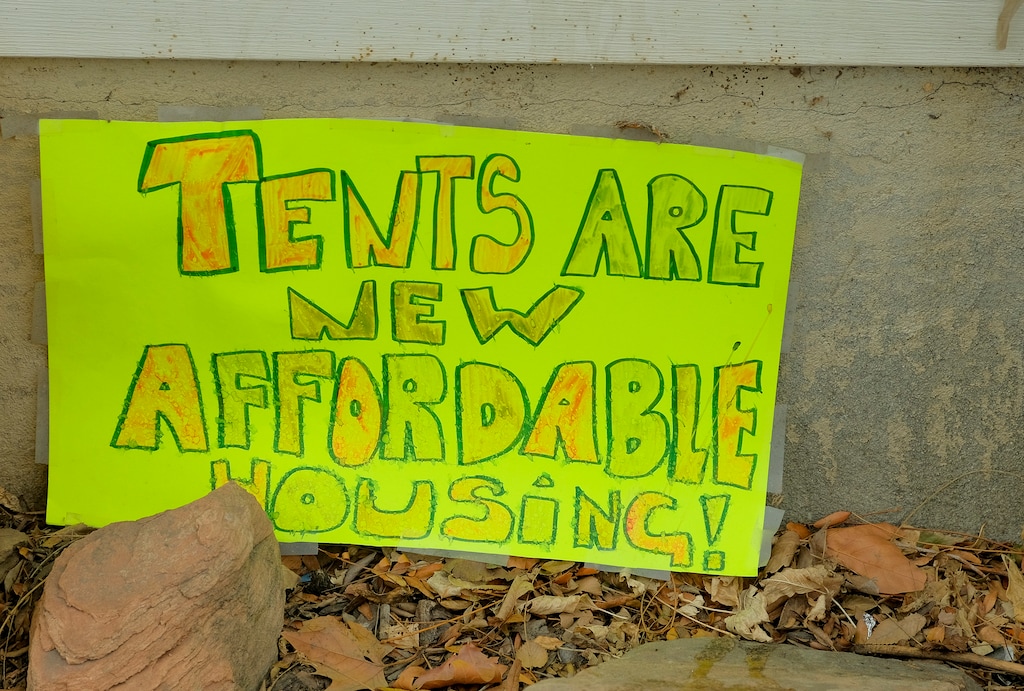 TENTS ARE
NEW
AFFORDABLE
HOUSiNG!